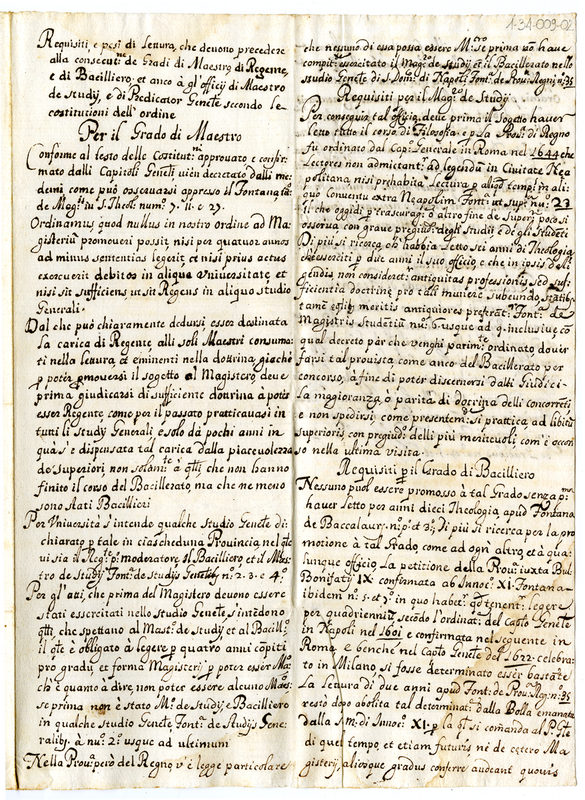 1-34-009-02
Requisiti, e pesi di Lettura, che deuono precedere
alla consecutne de Gradi di Maestro di Regente,
e di Bacilliero, et anco à gl'officij di Maestro
de Studij, e di Predicator Genlle secondo le
costitutioni dell'ordine
Per il Grado di Maestro
Conforme al testo delle Costitutni approuato e confir-
mato dalli Capitoli Genlli uien decretato dalli me-
demi come può osseruarsi appresso il Fontana
de Magris in S. Theol. num. 7. 11. e 27.
Ordinamus quod nullus in nostro ordine ad Ma-
gisterium promoueri possit, nisi per quatuor annos
ad minus sententias legerit, et nisi prius actus
exercuerit debitos in aliqua Vniuersitate, et
nisi sit sufficiens ut sit Regens in aliquo studio
Generali.
Dal che può chiaramente dedursi esser destinata
la carica di Regente alli soli Maestri consuma-
ti nella Lettura, et eminenti nella dottrina, giache
p poter pmouersi il sogetto al Magistero, deue
prima giudicarsi di sufficiente dottrina à poter
esser Regente come per il passato pratticauasi in
tutti li Studij Generali, e solo dà pochi anni in
quà s'è dispensata tal carica dalla piaceuolezza
de superiori, non solamte à qlli che non hanno
finito il corso del Bacillerato, ma che ne meno
sono stati Bacillieri
Per Vniuersità s'intende qualche Studio Genlle di-
chiarato p tale in ciascheduna Prouincia, nel qle
vi sia il Regte pº moderatore, il Bacilliero, et il Maes-
tro de Studij Fontª de Studijs Genlibus nº 2. 3. e 4º
Per gl'atti, che prima del Magistero deuono essere
stati essercitati nello Studio Genlle, s'intēdono
qlli, che spettano al Mastº de Studij et al Bacillrº
il qle è obligato à legere p quatro anni cōpiti
pro gradu, et forma Magisterij p poter essèr Ma-
ch'è quanto à dire, non poter essere alcuno Maestº
se prima non è stato Mº de Studij, e Bacilliero
in qualche studio Genlle, Fontª de Studijs Gene-
ralibus à nuº 2º usque ad ultimum
Nella Prouª però del Regno v'è legge particolare
che nessuno di essa possa essere Mrō se prima nō haue
compitte essercitato il Magrº de studij et il Bacillerato nello
studio Genlle di S. Domcº di Napoli Fontª de Prouª Regni nº 35
Requisiti per il Magrº de Studij
Per conseguir tal officio, deue prima il Sogetto hauer
letto tutto il corso di Filosofia, e p la Prouª di Regno
fu ordinato dal Capº Generale in Roma nel 1644 che
Lectores non admictantur ad legendū in Ciuitate Nea-
politana, nisi prehabita Lectura p aliqd temps in ali-
quo Conuentu extra Neapolim Fontª ut supª nuº 23
il che oggidì p trascuragº ò altro fine de Superri poco si
osserua con graue pregiudº degli studij e de gli Studēti
Di più si ricerca, ch'habbia letto sei anni di Theologia
ch'esserciti p due anni il suo officio, e che in ipsis eli-
gendis non consideretur antiquitas professionis, sed suf-
ficientia doctrine pro tali munere subeundo,
tamē meritis antiquiores preferantr Fontª de
Magistris Studētiū nuº 6. usque ad 9. inclusiue, cō
qual decreto par che venghi parimte ordinato douer
farsi tal prouista come anco del Bacillerato per
concorso, à fine di poter discernersi dalli Giudici
la maggioranza, ò parità di dottrina delli concorrēti
e non spedirsi, come presentemte si prattica, ad libitū
superioris con pregiudº delli più meriteuoli, com'è occor-
so nella ultima visita.
Requisiti p il Grado di Bacilliero
Nessuno può essere promosso à tal Grado senza pª
hauer letto per anni dieci Theologia, apud Fontana
de Baccalaur. nº pº et 3º. Di più si ricerca per la pro-
motione à tal Grado, come ad ogn'altro, et à qua-
lunque officio La petitione della Prouª iuxta Bul-
Bonifatij IX confirmata ab Innocº XI. Fontana
ibidem nº 5. et 7º in quo habetr qº teneant legere
per quadrienniū secōdo l'ordinatº del Capto Genlle
in Napoli nel 1601 e confirmata nel seguente in
Roma, e benche nel Capto Genlle del 1622 celebra-
to in Milano si fosse determinato esser bastāte
La Lettura di due anni apud Fontª de Prouª Regni nº 35
resto dopo abolita tal determinatº dalla Bolla emanata
dalla Smª di Innocº XI. p la ql si comāda al P. Gnle
di quel tempo, et etiam futuris, ne de cetero Ma-
gisterij, aliosque gradus conferre audeant quouis